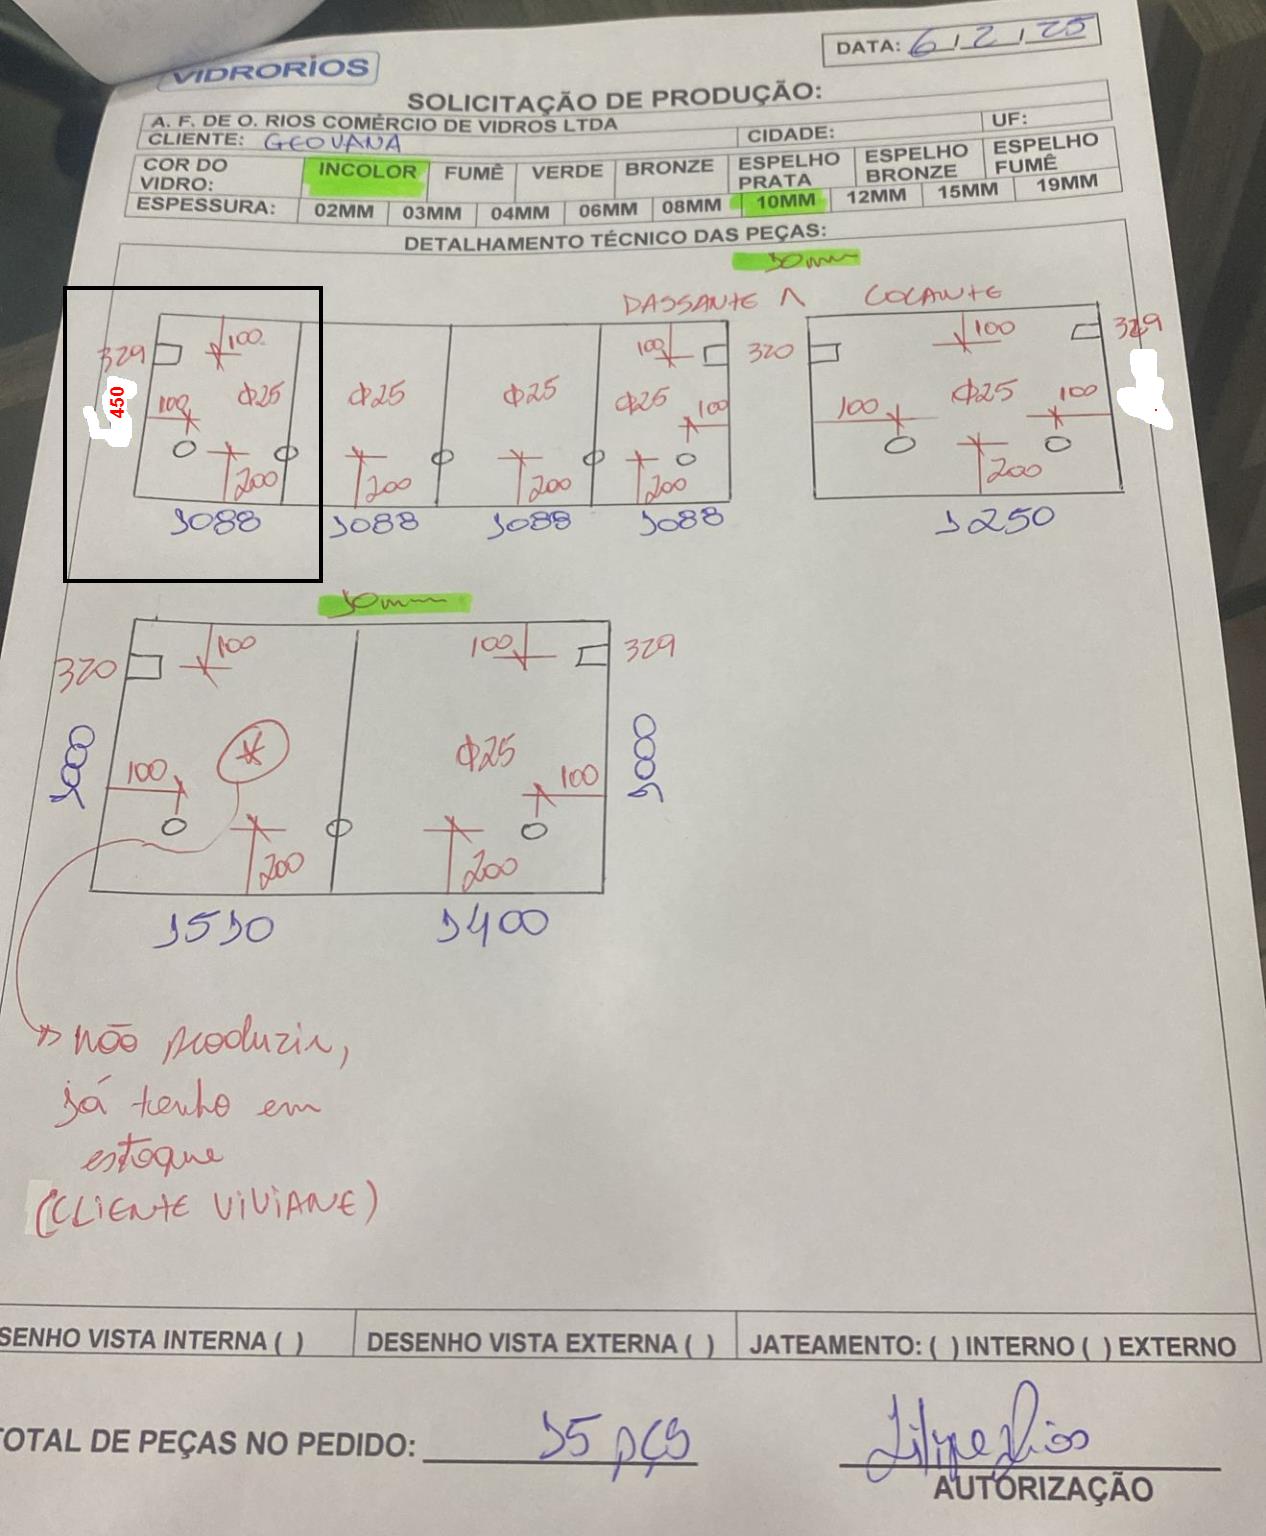 VIDRORIOS
DATA: 6 / 2 / 25
SOLICITAÇÃO DE PRODUÇÃO:
A. F. DE O. RIOS COMÉRCIO DE VIDROS LTDA
CLIENTE: GEOVANA CIDADE: UF:
COR DO VIDRO: INCOLOR FUMÊ VERDE BRONZE ESPELHO PRATA ESPELHO BRONZE ESPELHO FUMÊ
ESPESSURA: 02MM 03MM 04MM 06MM 08MM 10MM 12MM 15MM 19MM
DETALHAMENTO TÉCNICO DAS PEÇAS:
10mm
PASSANTE Λ COLANTE
329 100 100 320 100 329
450 100 Φ25 Φ25 Φ25 Φ25 100 100 Φ25 100
200 200 200 200 200
1088 1088 1088 1088 1250
10mm
320 100 100 329
1000 100 * Φ25 100 1000
200 200
1510 1400
não produzir,
já tenho em
estoque
(CLIENTE VIVIANE)
SENHO VISTA INTERNA ( ) DESENHO VISTA EXTERNA ( ) JATEAMENTO: ( ) INTERNO ( ) EXTERNO
TOTAL DE PEÇAS NO PEDIDO: 15 pçs
AUTORIZAÇÃO